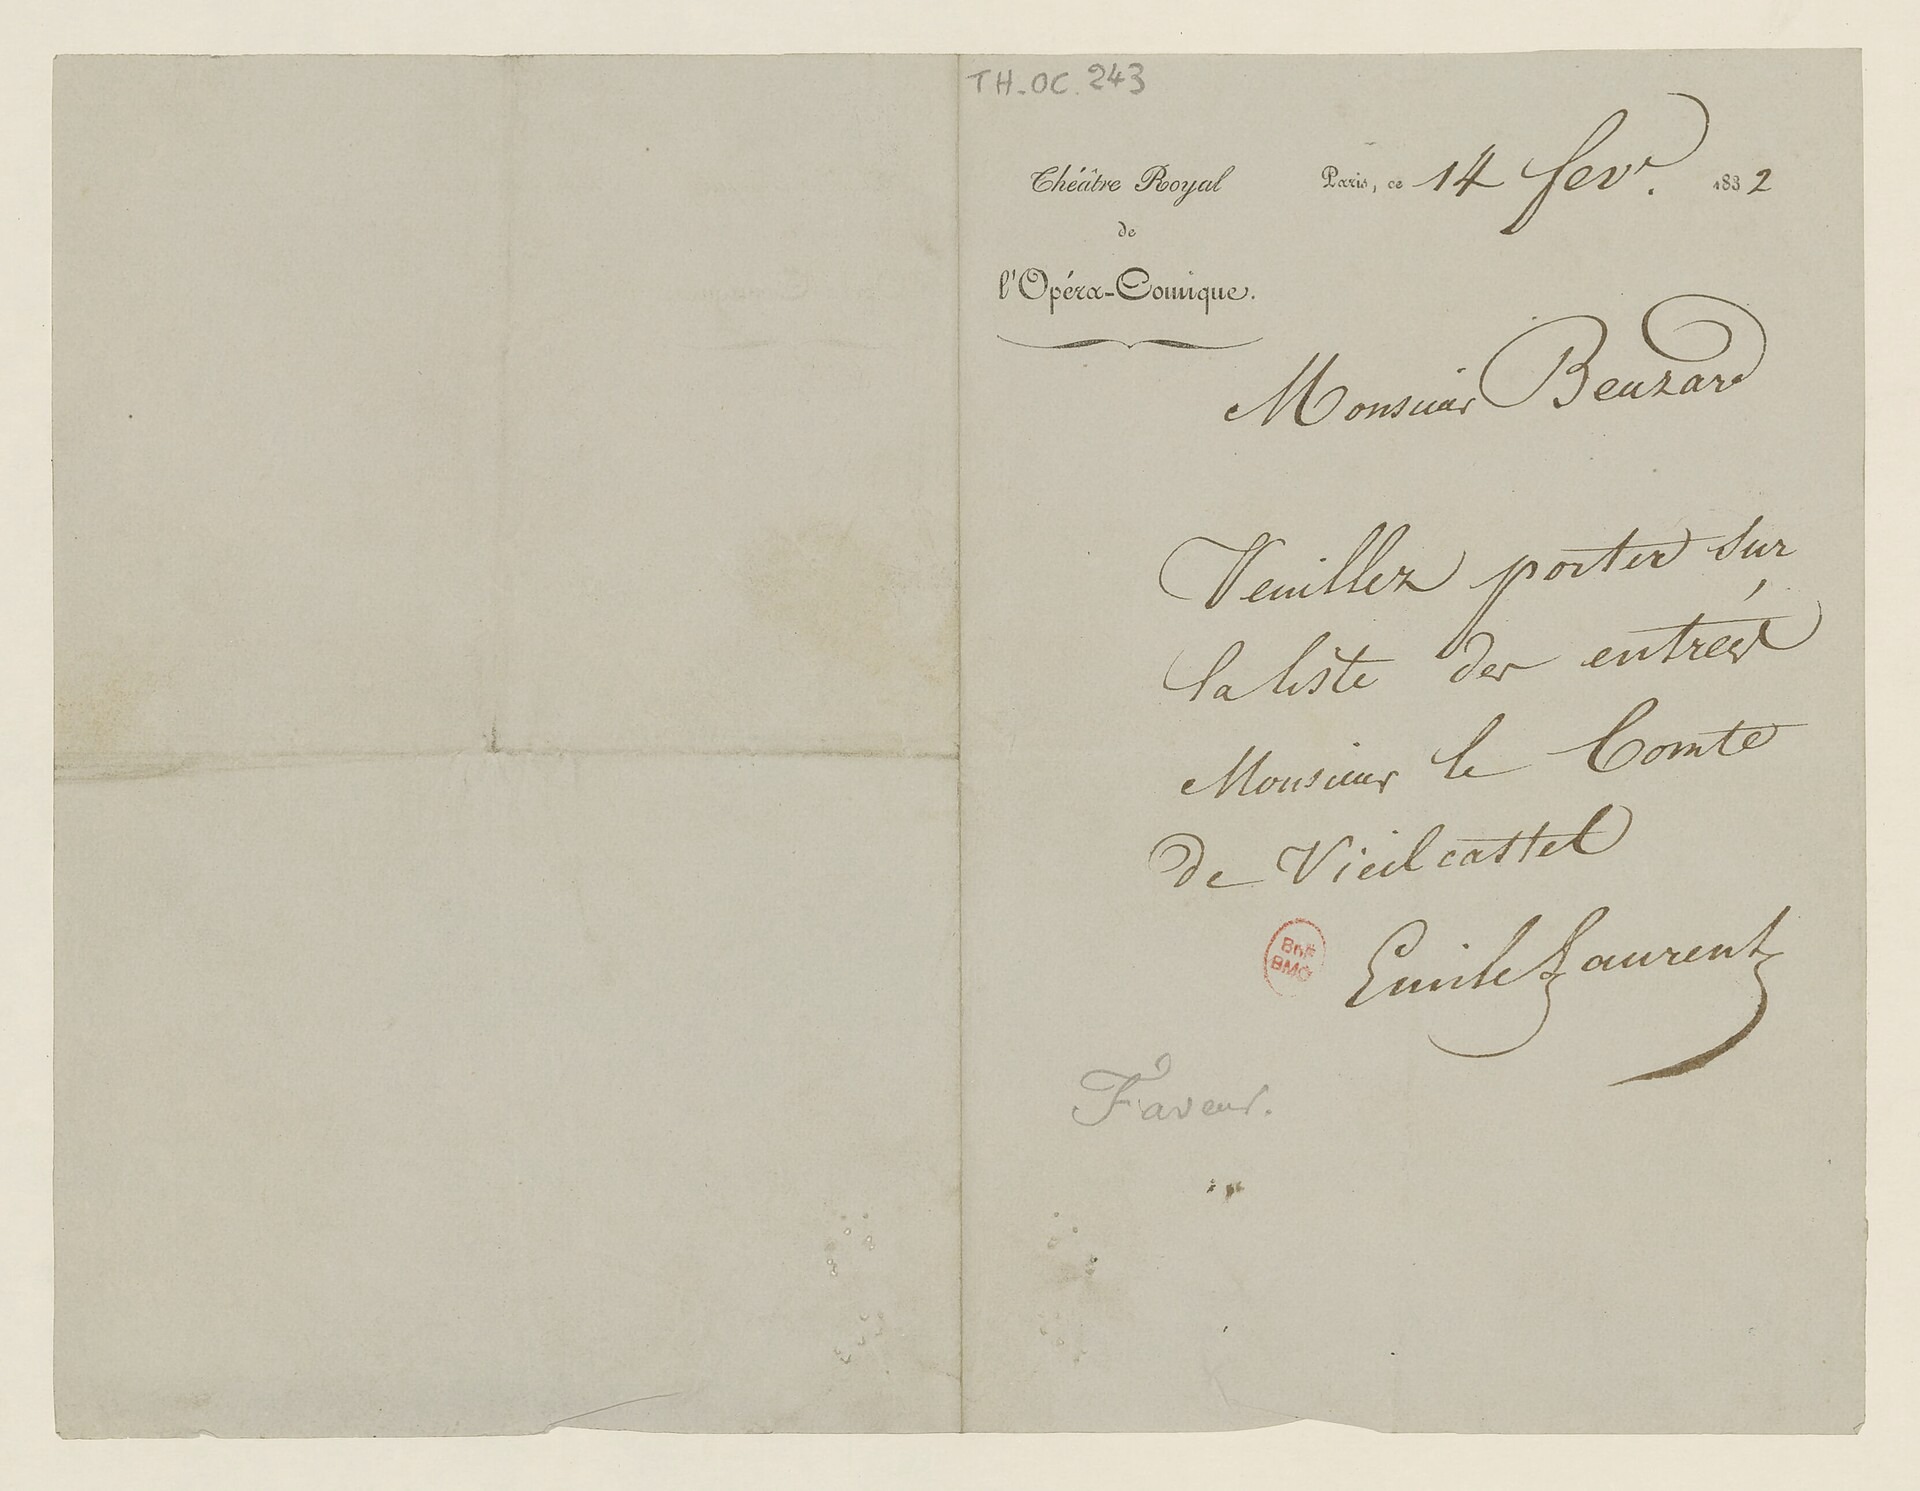 TH-OC. 243
Théâtre Royal
de
l'Opéra-Comique.
Paris, ce 14 fevr. 1832
Monsieur Beuzard
Veuillez porter sur
la liste des entrées
Monsieur le Comte
de Vieilcastel
Emile Laurent
BnF
BMO
Faveur.